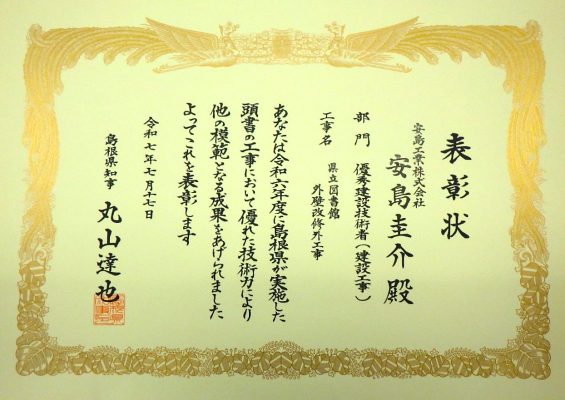 表彰状
安島工業株式会社
安島圭介殿
部門 優秀建設技術者(建設工事)
工事名 県立図書館
外壁改修外工事
あなたは令和六年度に島根県が実施した
頭書の工事において優れた技術力により
他の模範となる成果をあげられました
よってこれを表彰します
令和七年七月十七日
島根県知事 丸山達也